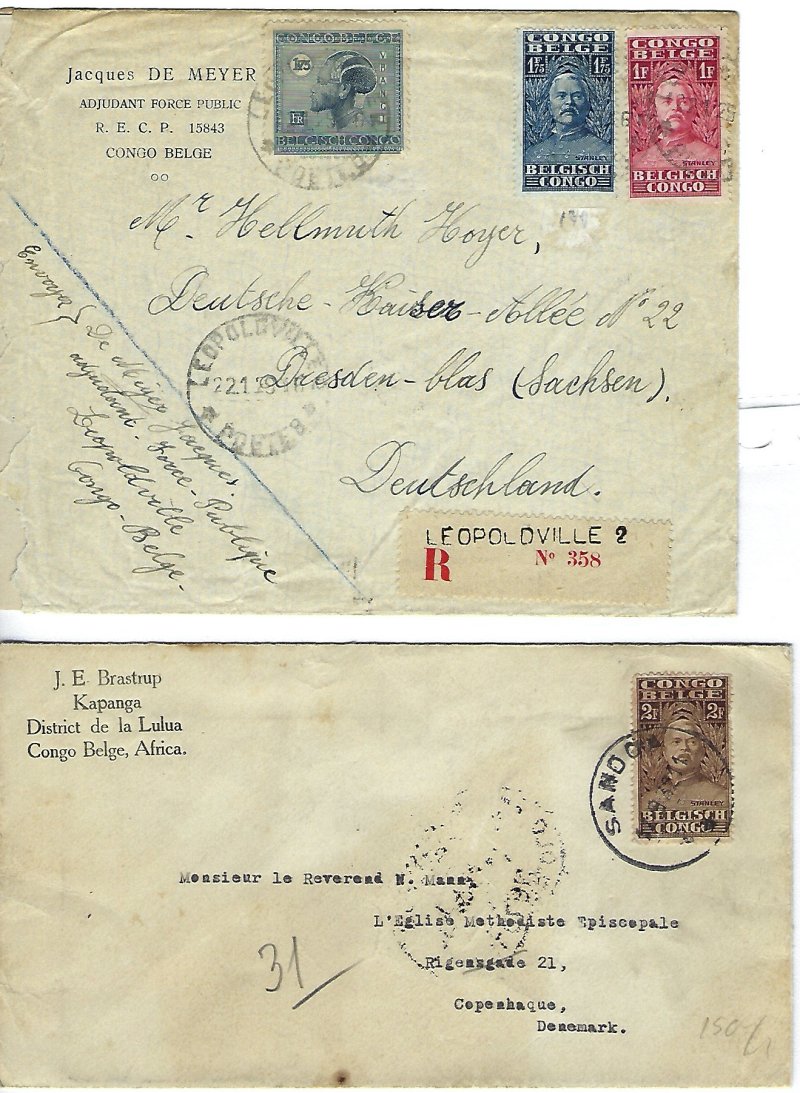 Jacques DE MEYER
ADJUDANT FORCE PUBLIC
R. E. C. P. 15843
CONGO BELGE
CONGO BELGE
1.75
FR
BELGISCH CONGO
CONGO BELGE
1F 75 1F 75
STANLEY
BELGISCH CONGO
CONGO BELGE
1F 1F
STANLEY
BELGISCH CONGO
Mr. Hellmuth Hoyer,
Deutsche-Kaiser-Allée No 22
Dresden-blas (Sachsen).
Deutschland.
LEOPOLDVILLE
22.1.29
De Meyer Jacques.
adjudant. Force-Publique
Leopoldville
Congo-Belge-
LEOPOLDVILLE 2
R No 358
J. E. Brastrup
Kapanga
District de la Lulua
Congo Belge, Africa.
CONGO BELGE
2F 2F
STANLEY
BELGISCH CONGO
SANDOA
Monsieur le Reverend N. Mann,
L'Eglise Methodiste Episcopale
Rigensgade 21,
Copenhaque,
Denemark.
31
150/